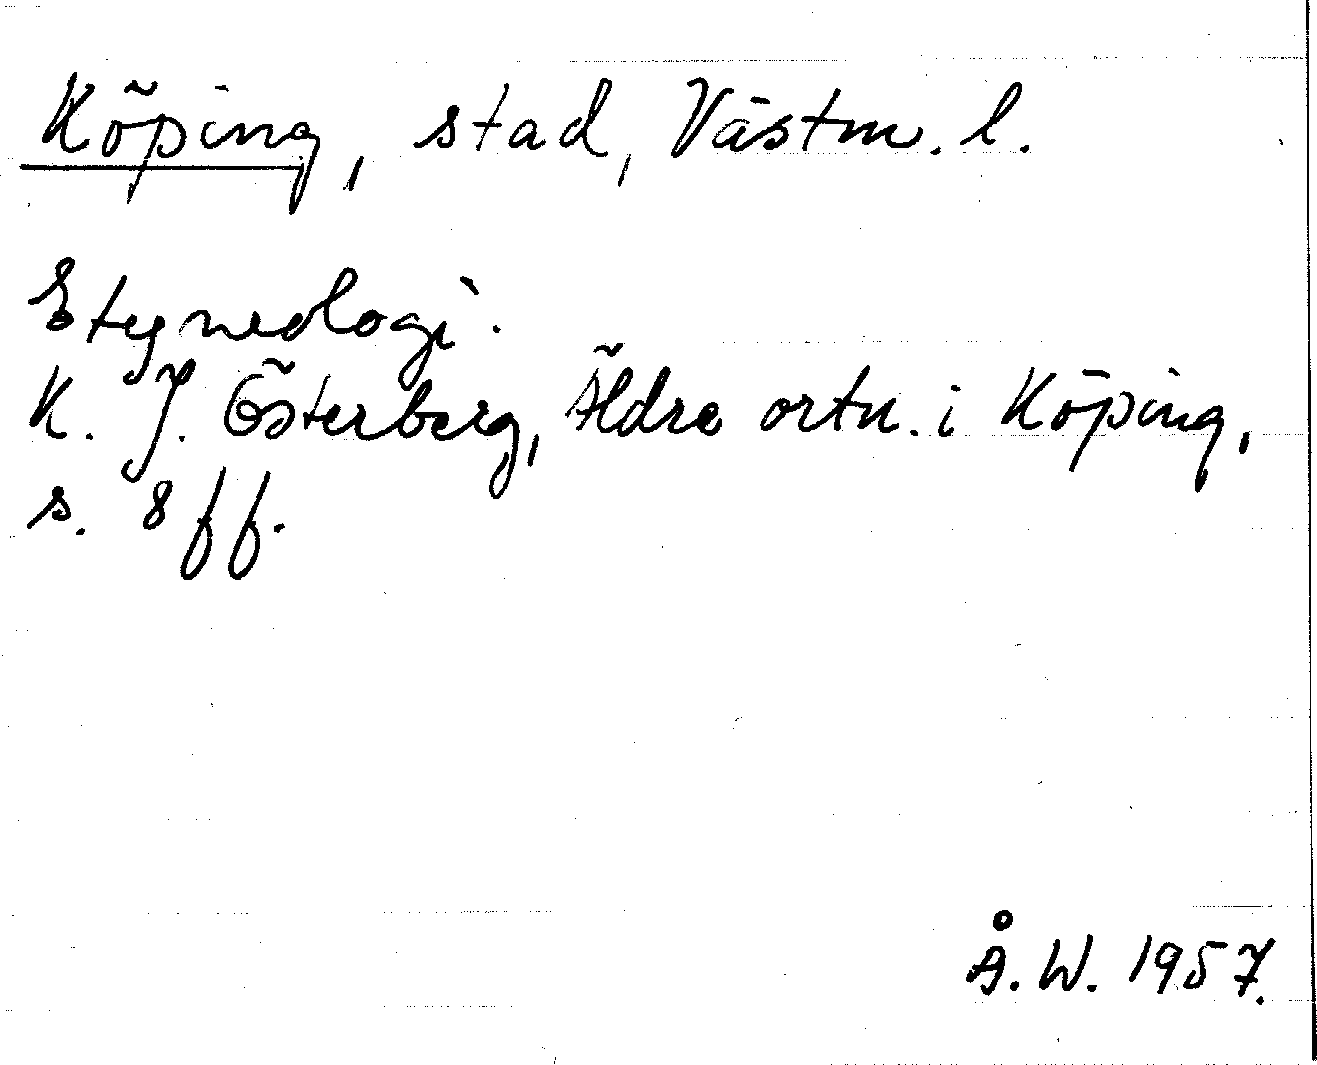 Köping, stad, Västm. l.
Etymologi.
K. J. Österberg, Äldre ortn. i Köping,
s. 8 ff.
Å. W. 1957.